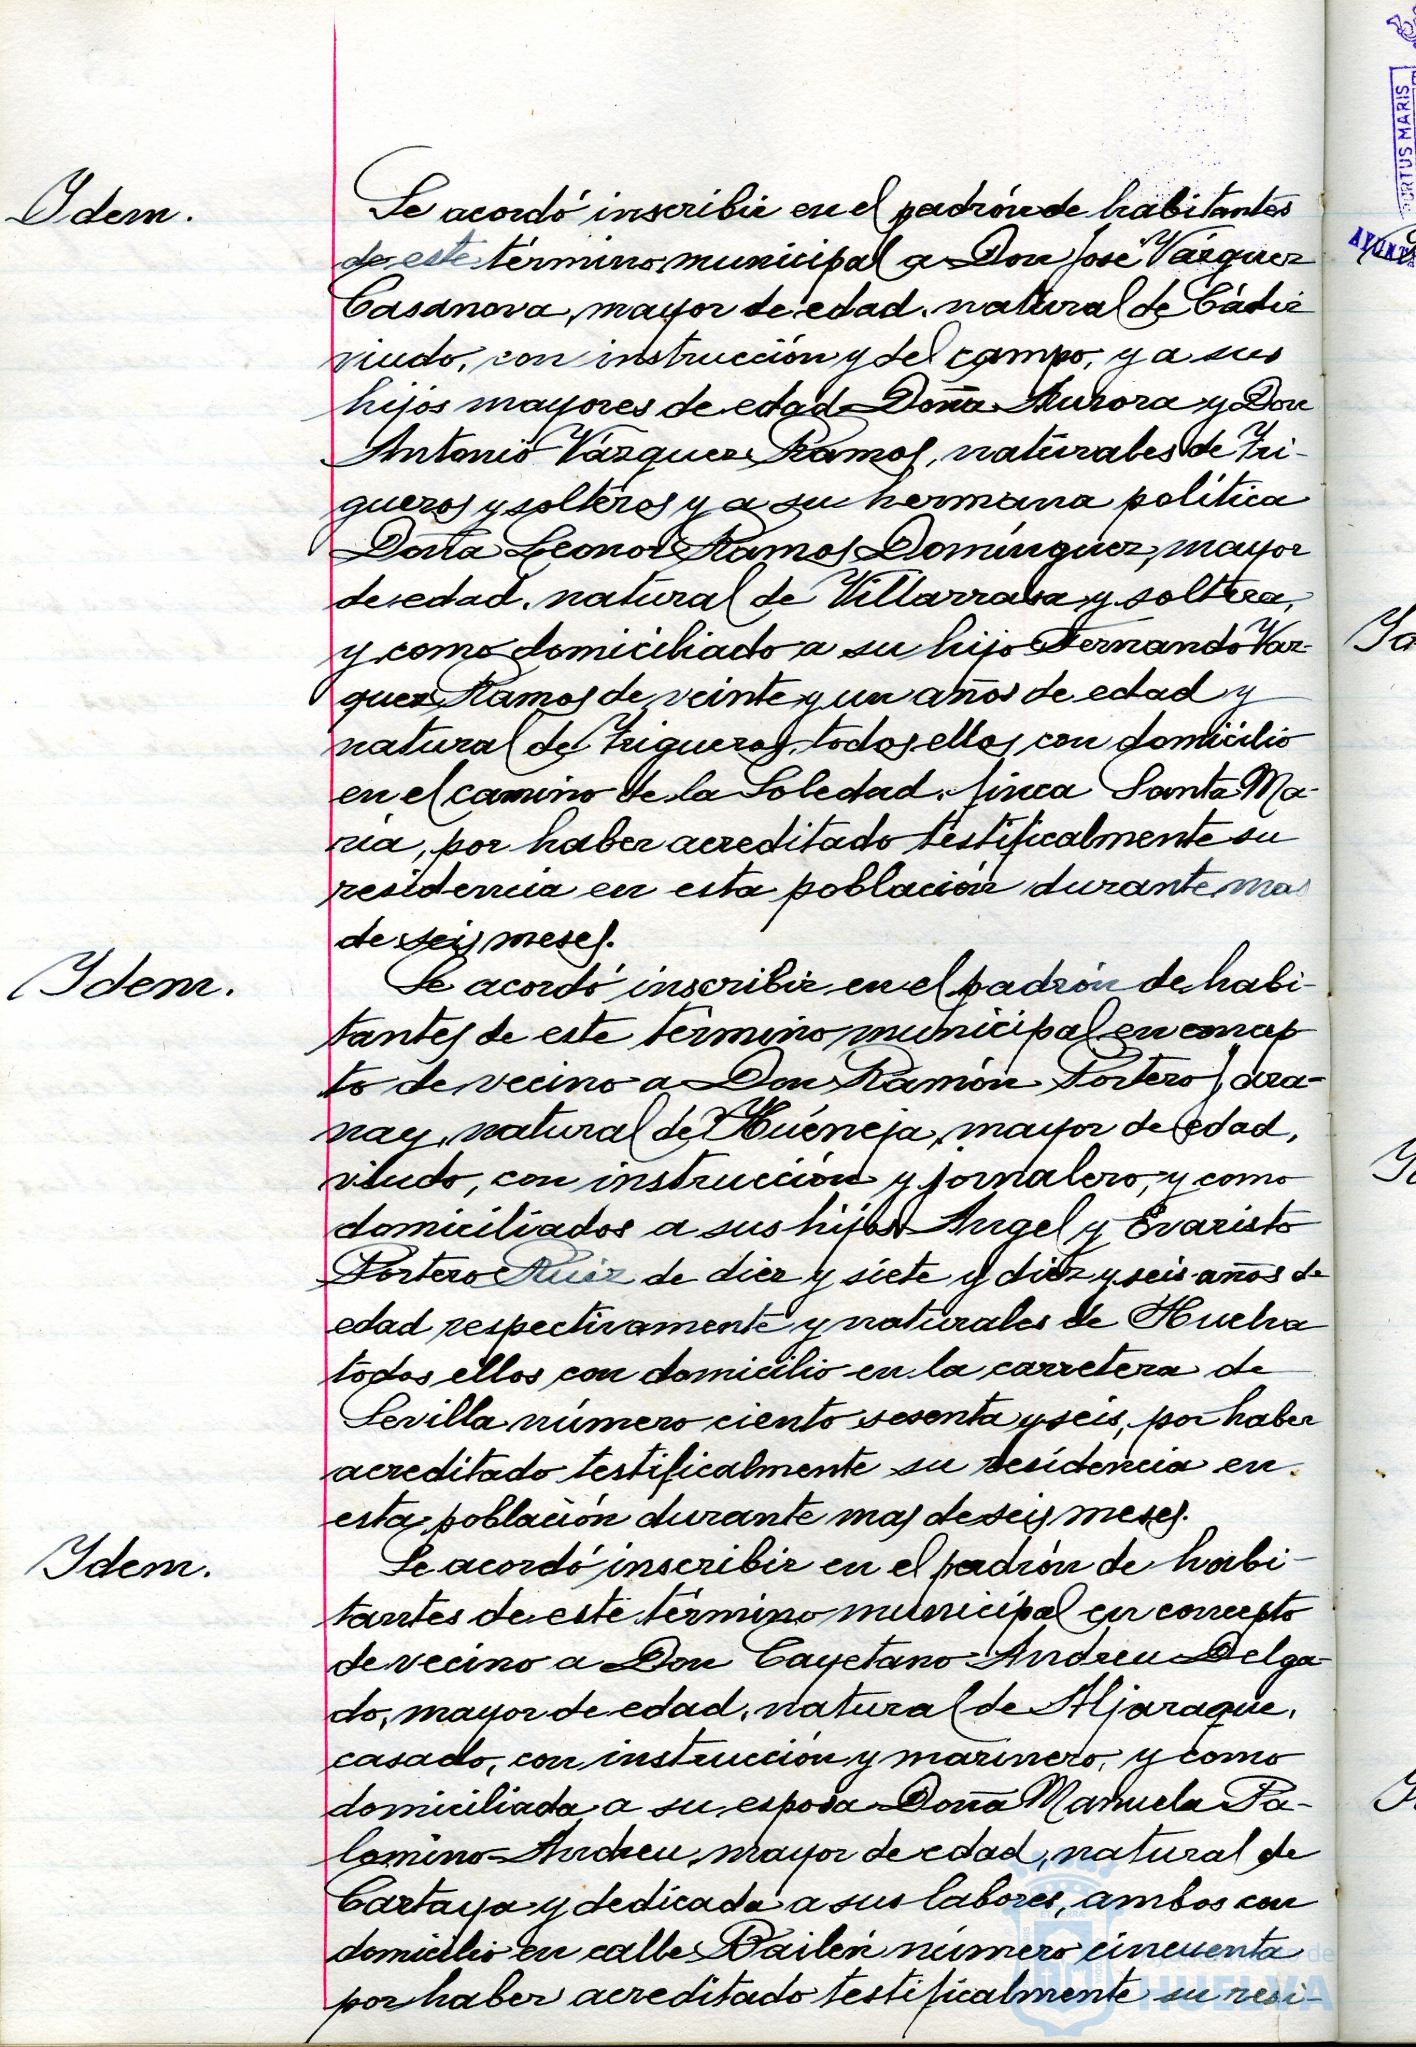 Idem.
Se acordó inscribir en el padrón de habitantes
de este término municipal a Don José Vázquez
Casanova, mayor de edad, natural de Cádiz
viudo, con instrucción y del campo, y a sus
hijos mayores de edad Doña Aurora y Don
Antonio Vázquez Ramos, naturales de Tri-
gueros y solteros y a su hermana política
Doña Leonor Ramos Domínguez, mayor
de edad, natural de Villarrasa y soltera,
y como domiciliado a su hijo Fernando Vaz-
quez Ramos de veinte y un años de edad y
natural de Trigueros, todos ellos con domicilio
en el camino de la Soledad, finca Santa Ma-
ria, por haber acreditado testificalmente su
residencia en esta población durante mas
de seis meses.
Idem.
Se acordó inscribir en el padrón de habi-
tantes de este término municipal en concep
to de vecino a Don Ramón Portero
nay, natural de Huéneja, mayor de edad,
viudo, con instrucción y jornalero, y como
domiciliados a sus hijos Angel y Evaristo
Portero Ruiz de diez y siete y diez y seis años de
edad respectivamente y naturales de Huelva
todos ellos con domicilio en la carretera de
Sevilla número ciento sesenta y seis, por haber
acreditado testificalmente su residencia en
esta población durante mas de seis meses.
Idem.
Se acordó inscribir en el padrón de habi-
tantes de este término municipal en concepto
de vecino a Don Cayetano Andreu Delga-
do, mayor de edad, natural de Aljaraque,
casado, con instrucción y marinero, y como
domiciliada a su esposa Doña Manuela Pa-
lomino Andreu, mayor de edad, natural de
Cartaya y dedicada a sus labores, ambos con
domicilio en calle Bailén número cincuenta
por haber acreditado testificalmente su resi-
PORTUS MARIS
HUELVA